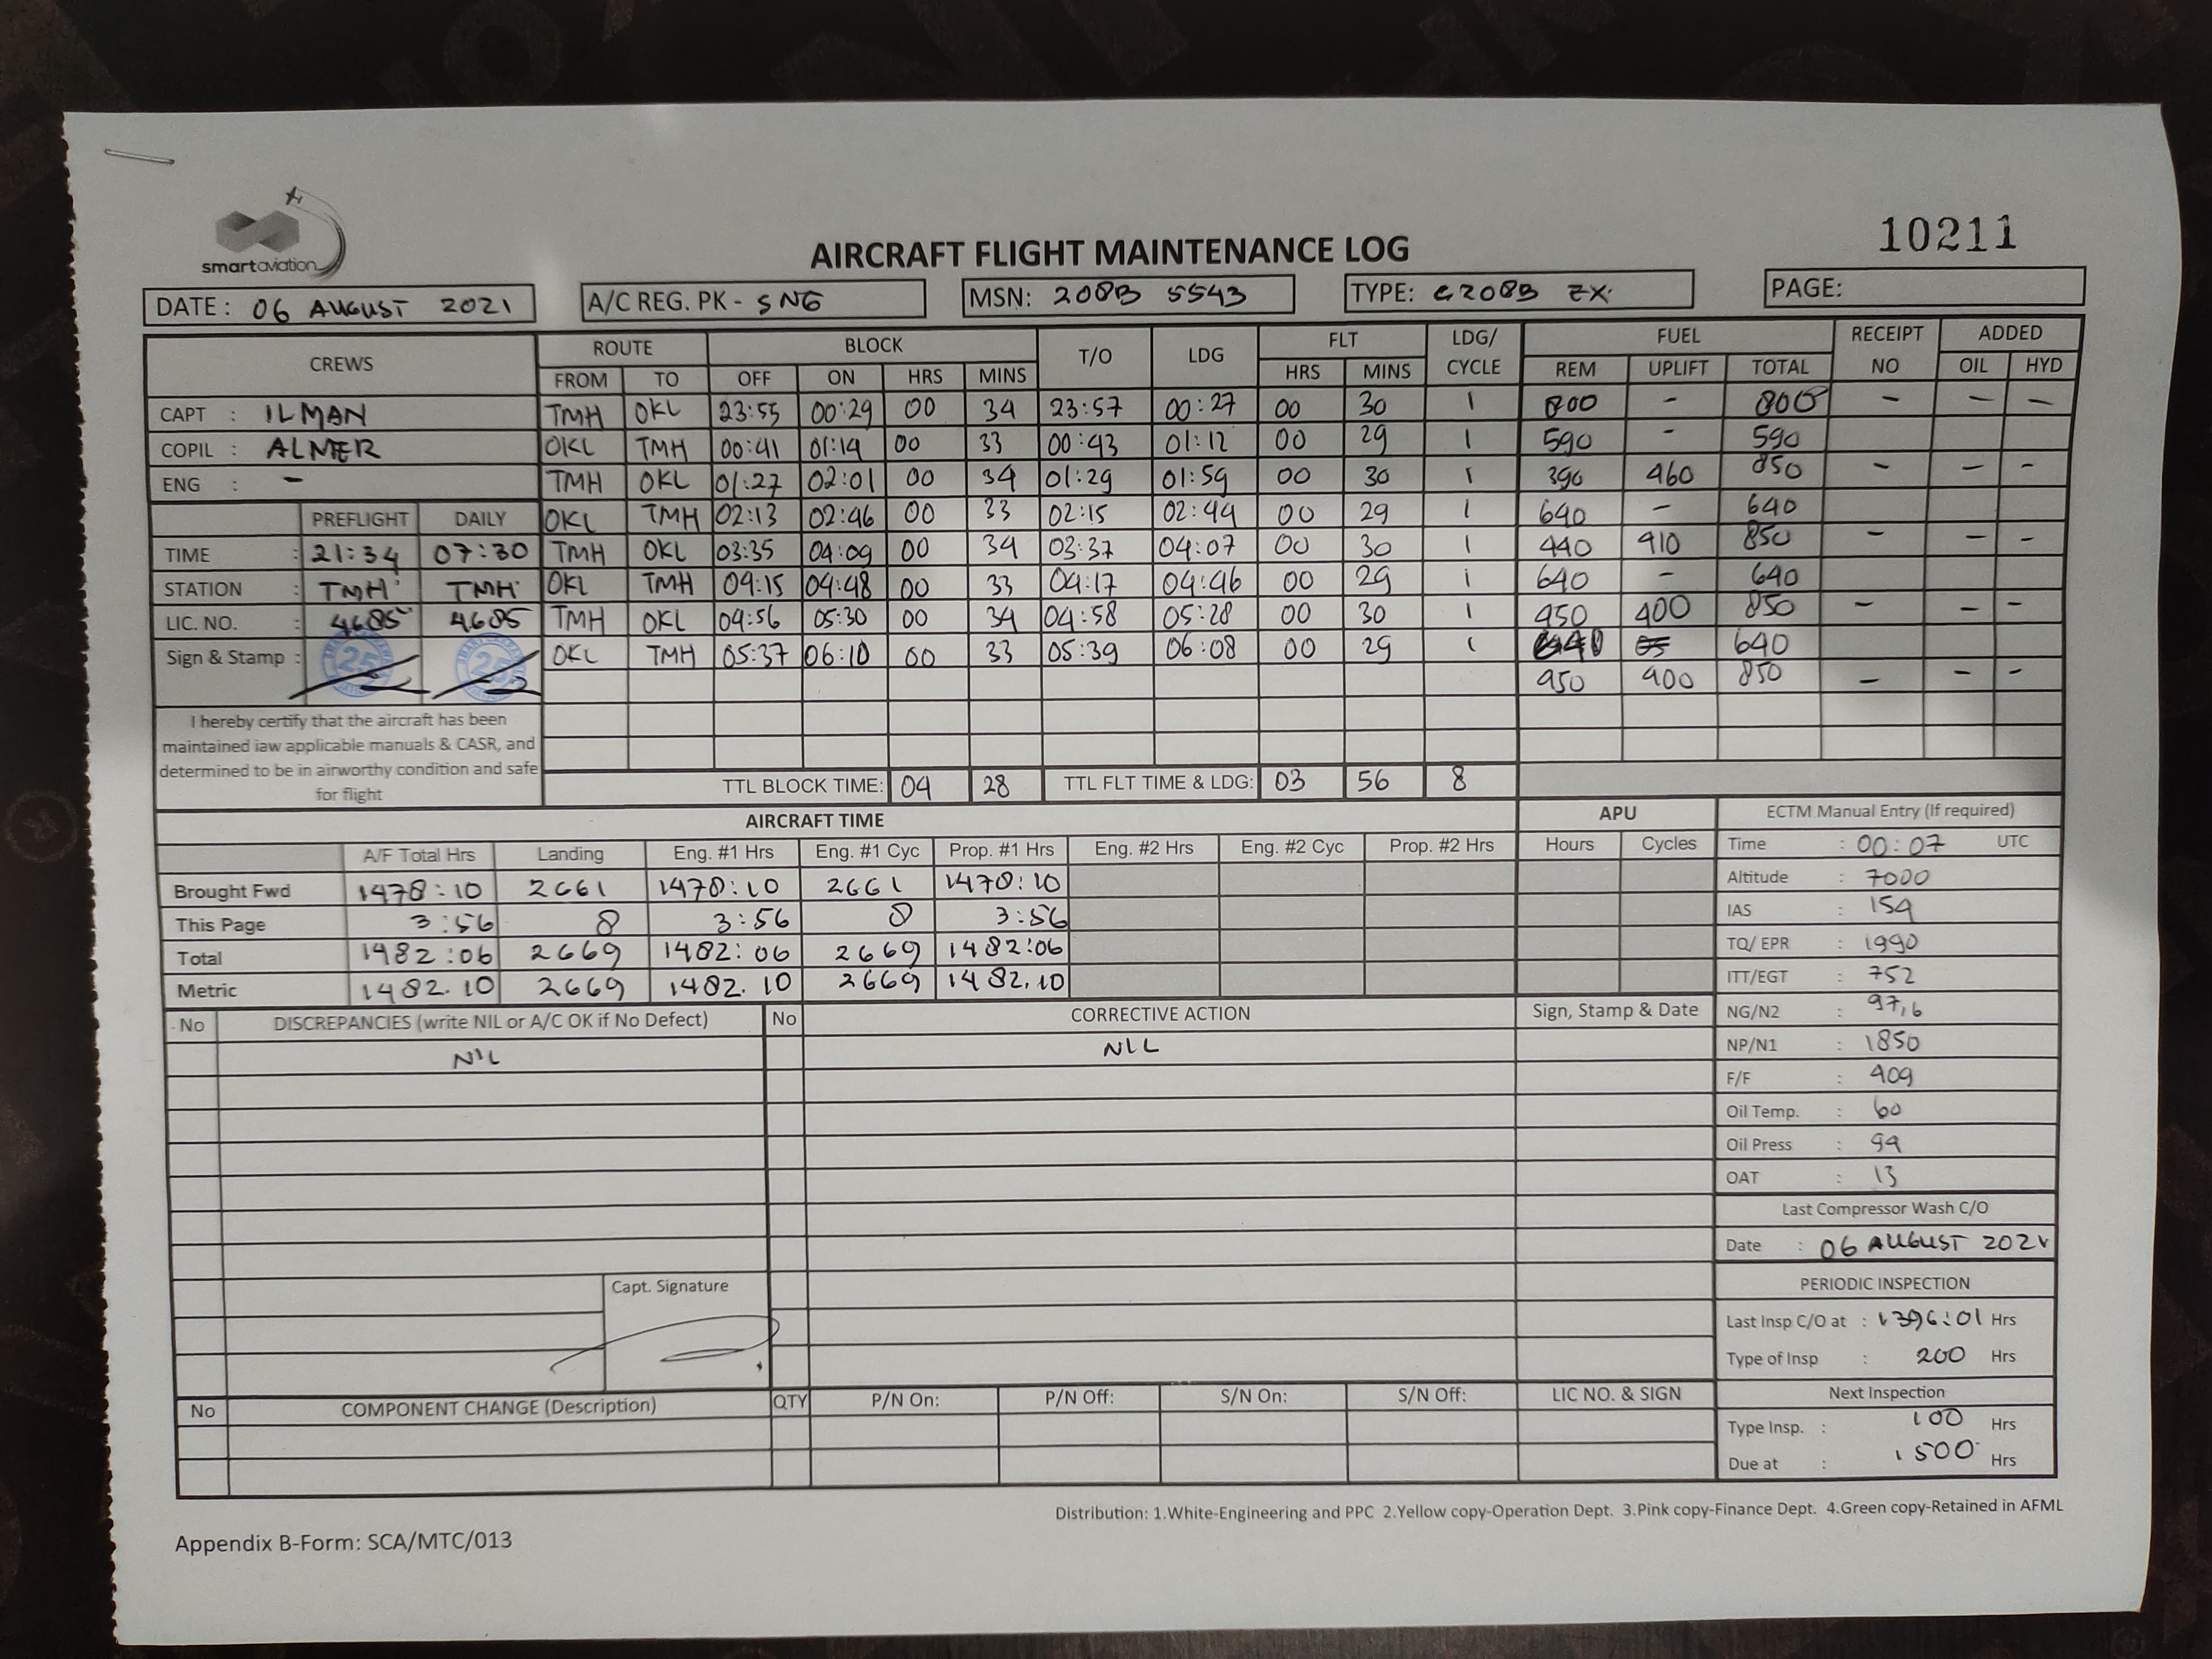 smartaviation
10211
AIRCRAFT FLIGHT MAINTENANCE LOG
DATE: 06 AUGUST 2021 A/C REG. PK - SNG MSN: 208B 5543 TYPE: C208B EX. PAGE:
CREWS ROUTE BLOCK T/O LDG FLT LDG/ CYCLE FUEL RECEIPT NO ADDED
FROM TO OFF ON HRS MINS HRS MINS REM UPLIFT TOTAL OIL HYD
CAPT : ILMAN TMH OKL 23:55 00:29 00 34 23:57 00:27 00 30 1 800 - 800 - - -
COPIL : ALMER OKL TMH 00:41 01:14 00 33 00:43 01:12 00 29 1 590 - 590
ENG : - TMH OKL 01:27 02:01 00 34 01:29 01:59 00 30 1 390 460 850 - - -
PREFLIGHT DAILY OKL TMH 02:13 02:46 00 33 02:15 02:44 00 29 1 640 - 640
TIME : 21:34 07:30 TMH OKL 03:35 04:09 00 34 03:37 04:07 00 30 1 440 410 850 - - -
STATION : TMH TMH OKL TMH 04:15 04:48 00 33 04:17 04:46 00 29 1 640 - 640
LIC. NO. : 4685 4685 TMH OKL 04:56 05:30 00 34 04:58 05:28 00 30 1 450 400 850 - - -
Sign & Stamp : 25 25 OKL TMH 05:37 06:10 00 33 05:39 06:08 00 29 1 640
450 400 850 - - -
I hereby certify that the aircraft has been
maintained iaw applicable manuals & CASR, and
determined to be in airworthy condition and safe
for flight
TTL BLOCK TIME: 04 28 TTL FLT TIME & LDG: 03 56 8
AIRCRAFT TIME APU ECTM Manual Entry (If required)
A/F Total Hrs Landing Eng. #1 Hrs Eng. #1 Cyc Prop. #1 Hrs Eng. #2 Hrs Eng. #2 Cyc Prop. #2 Hrs Hours Cycles Time : 00:07 UTC
Brought Fwd 1478:10 2661 1478:10 2661 1478:10 Altitude : 7000
This Page 3:56 8 3:56 8 3:56 IAS : 154
Total 1482:06 2669 1482:06 2669 1482:06 TQ/ EPR : 1990
Metric 1482.10 2669 1482.10 2669 1482.10 ITT/EGT : 752
No DISCREPANCIES (write NIL or A/C OK if No Defect) No CORRECTIVE ACTION Sign, Stamp & Date NG/N2 : 97,6
NIL NIL NP/N1 : 1850
F/F : 409
Oil Temp. : 60
Oil Press : 94
OAT : 13
Last Compressor Wash C/O
Date : 06 AUGUST 2021
Capt. Signature PERIODIC INSPECTION
Last Insp C/O at : 1396:01 Hrs
Type of Insp : 200 Hrs
No COMPONENT CHANGE (Description) QTY P/N On: P/N Off: S/N On: S/N Off: LIC NO. & SIGN Next Inspection
Type Insp. : 100 Hrs
Due at : 1500 Hrs
Distribution: 1.White-Engineering and PPC 2.Yellow copy-Operation Dept. 3.Pink copy-Finance Dept. 4.Green copy-Retained in AFML
Appendix B-Form: SCA/MTC/013